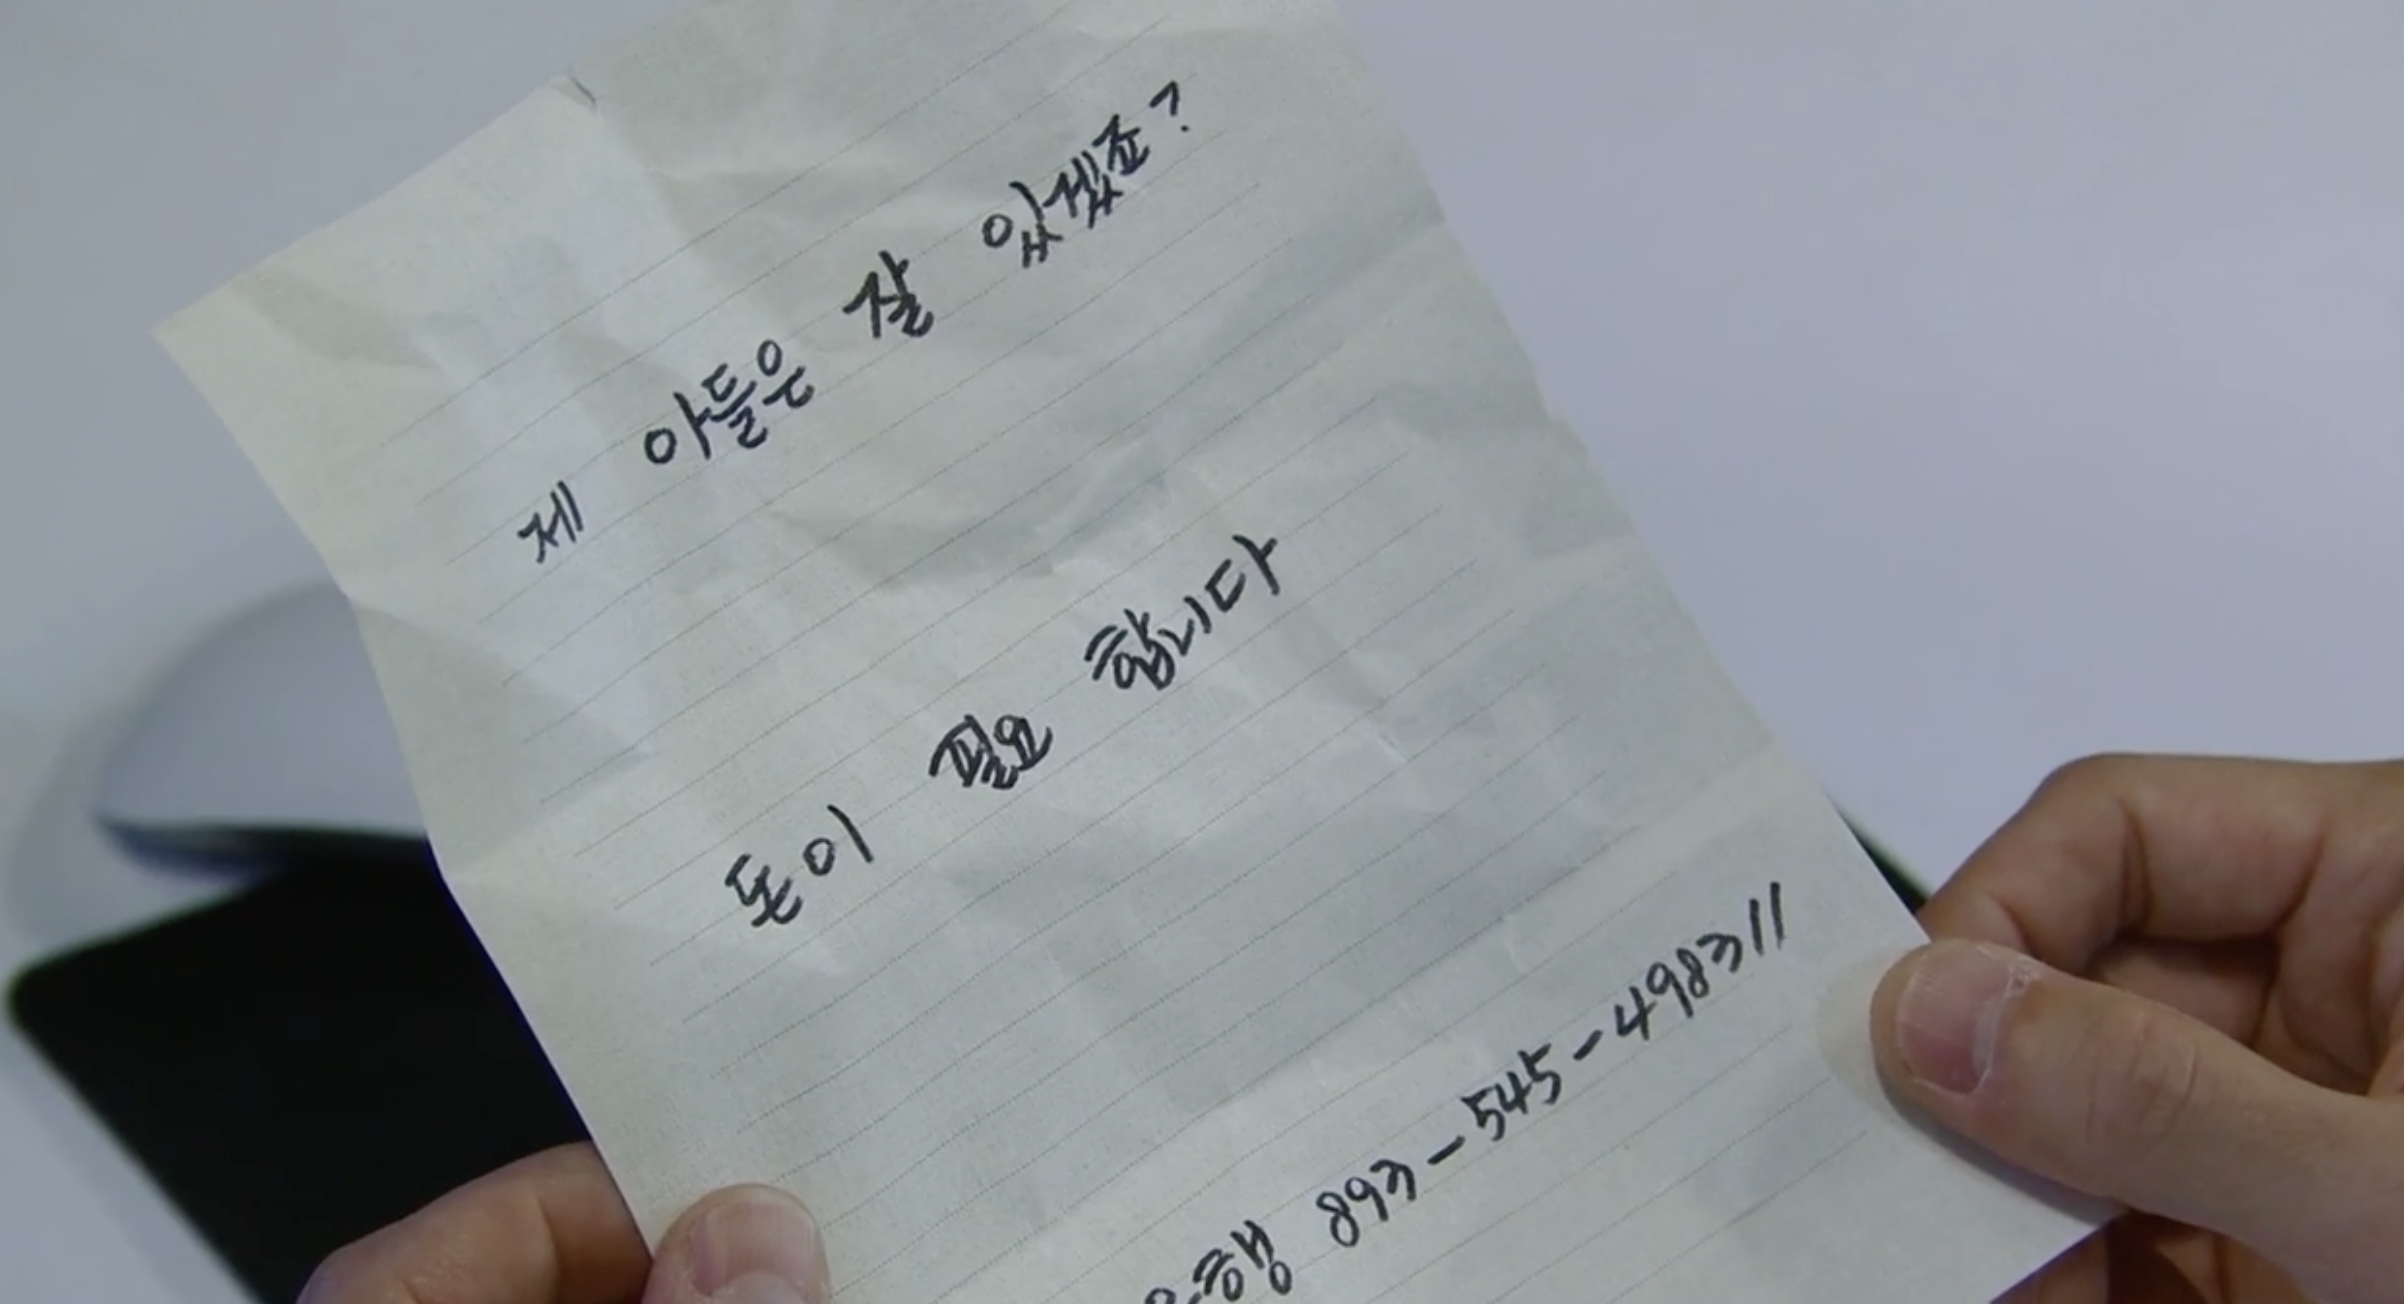 제 아들은 잘 있겠죠?
돈이 필요 합니다
은행 893-545-498311